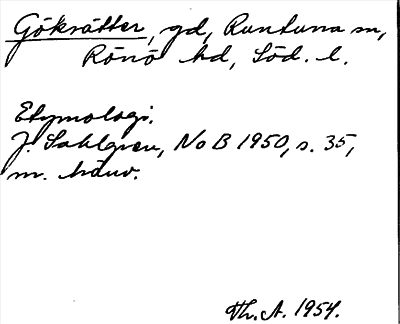 Göksätter, gd, Runtuna sn,
Rönö hd, Söd. l.
Etymologi.
J. Sahlgren, NoB 1950, s. 35,
m. hänv.
Th. A. 1954.